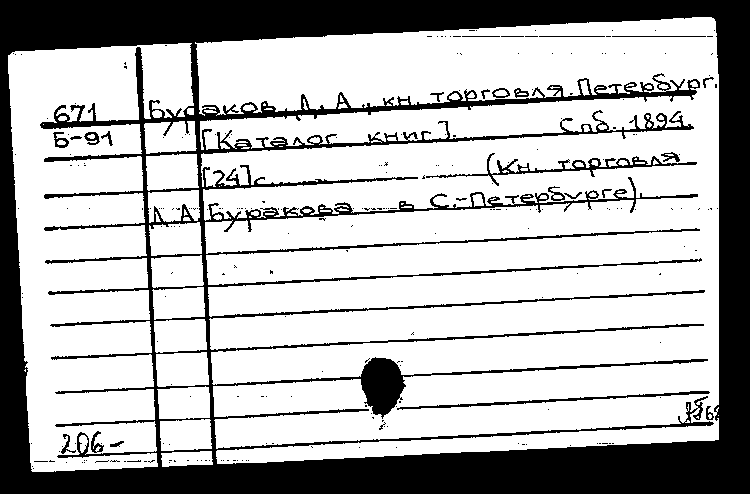 671 Бураков, Д. А., кн. торговля. Петербург.
Б-91 [Каталог книг]. Спб., 1894.
[24] с. (Кн. торговля
Д. А. Буракова в С.-Петербурге).
206-